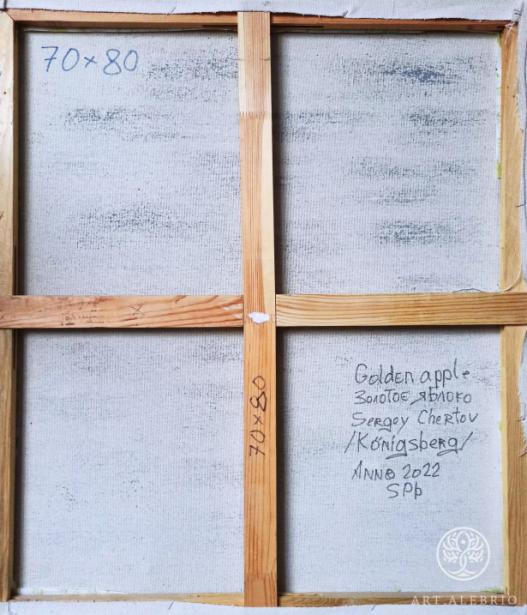 70×80
70×80
Golden apple
Золотое яблоко
Sergey Chertov
/Königsberg/
Anno 2022
SPb
ART ALEBRIO